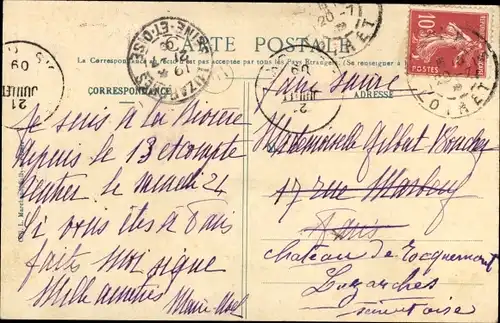 CARTE POSTALE
La Correspondance au recto n'est pas acceptée par tous les Pays Étrangers. (Se renseigner à la
CORRESPONDANCE
ADRESSE
Je suis à la
depuis le 13 et compte
rentrer le mardi 24
Si vous êtes à Paris
faites moi signe
Mille amitiés
Marie
faire suivre
Mademoiselle Gilbert
17 rue Marbeuf
Paris
château de Rocquemont
Luzarches
Seine et Oise
21
JUILLET
09
LUZARCHES
SEINE-ET-OISE
20-7
LOIRET
10
POSTES